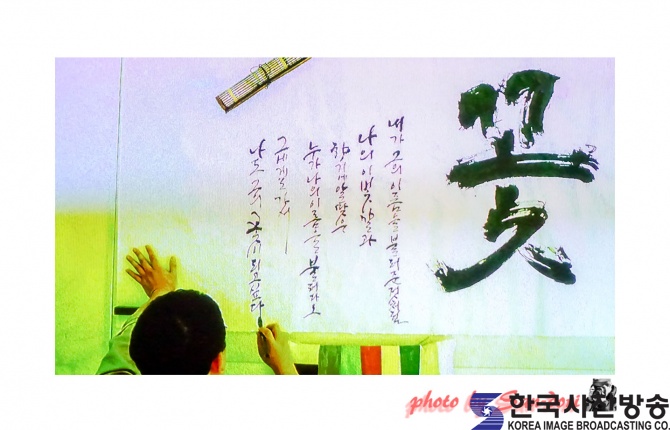 꽃
내가 그의 이름을 불러준 것처럼
나의 이 빛깔과
향기에 알맞은
누가 나의 이름을 불러다오
그에게로 가서
나도 그의 꽃이 되고 싶다
photo by
한국사진방송
KOREA IMAGE BROADCASTING CO.